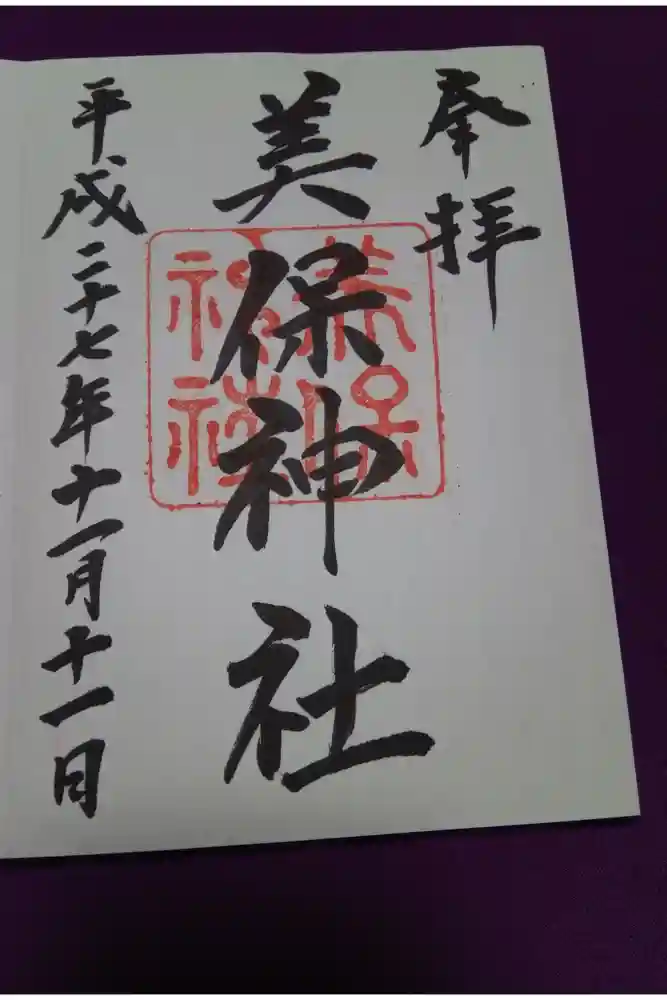 奉拝
美保神社
美保
神社
平成二十七年十一月十一日